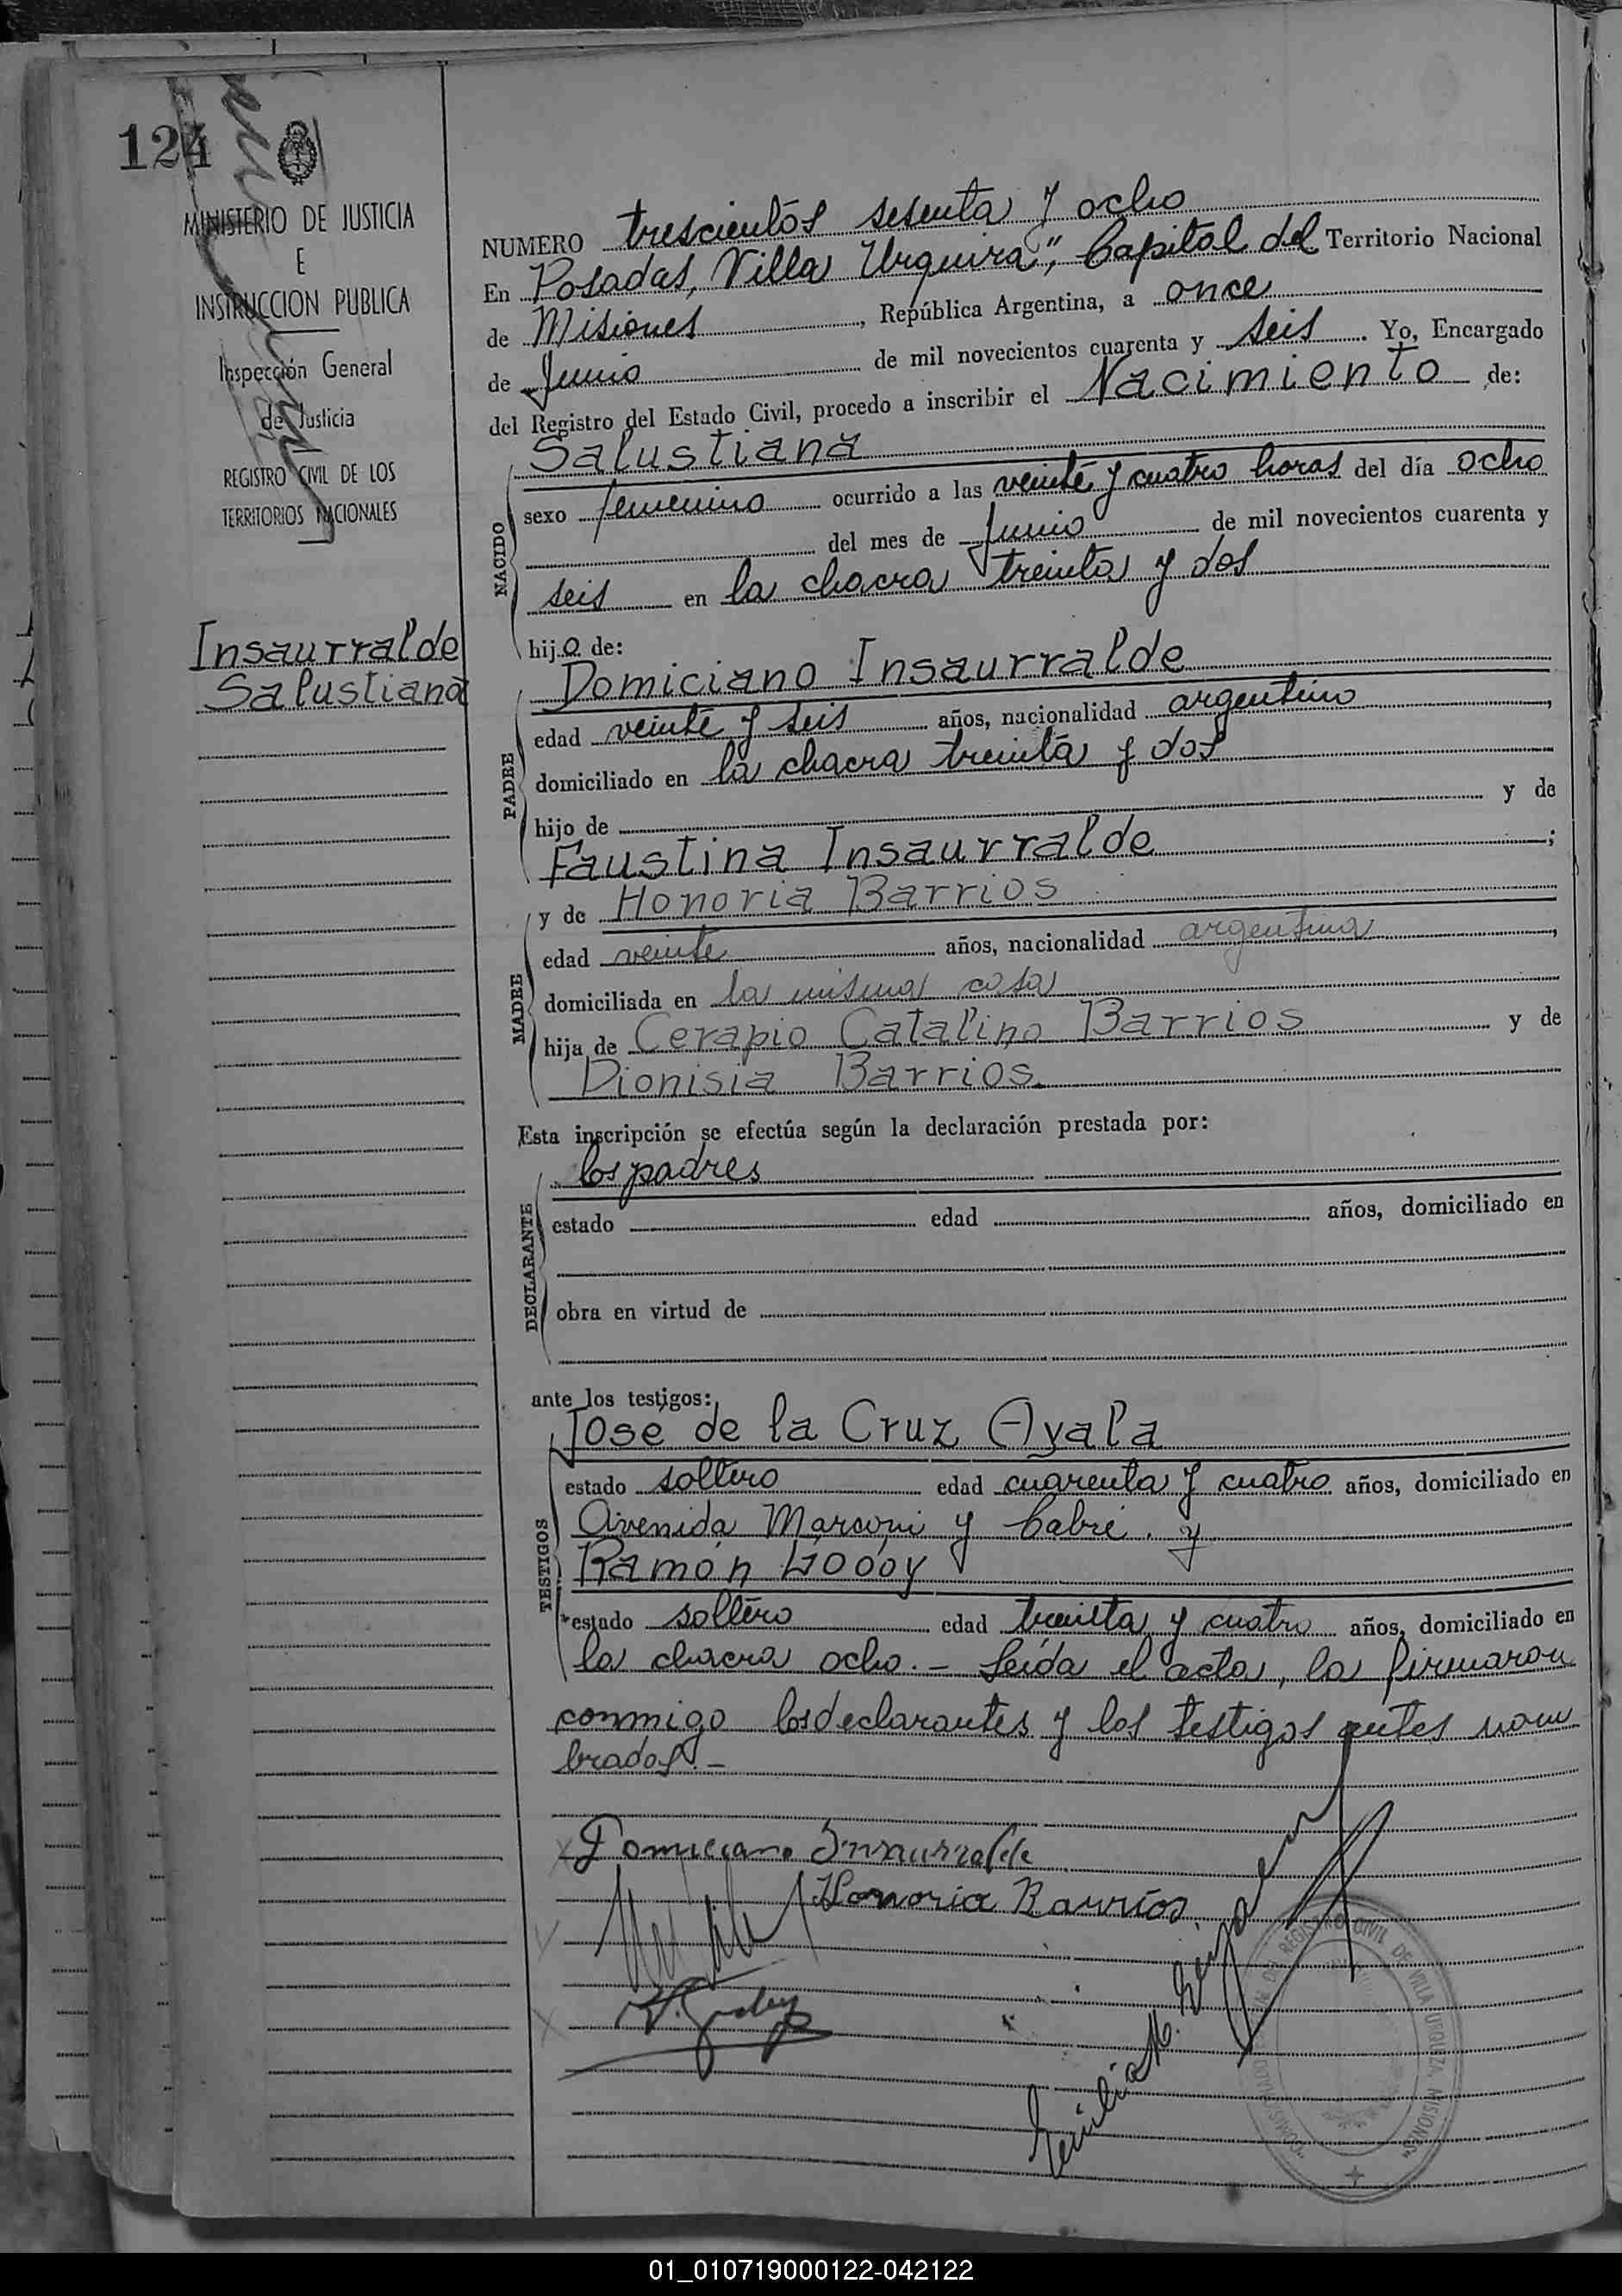 124
MINISTERIO DE JUSTICIA
E
INSTRUCCION PUBLICA
Inspección General
de Justicia
REGISTRO CIVIL DE LOS
TERRITORIOS NACIONALES
Insaurralde
Salustiana
NUMERO trescientos sesenta y ocho
En Posadas, Villa Urquiza", Capital del Territorio Nacional
de Misiones, República Argentina, a once
de Junio de mil novecientos cuarenta y seis. Yo, Encargado
del Registro del Estado Civil, procedo a inscribir el Nacimiento de:
NACIDO
Salustiana
sexo femenino ocurrido a las veinte y cuatro horas del día ocho
del mes de Junio de mil novecientos cuarenta y
seis en la chacra treinta y dos
hijo de:
PADRE
Domiciano Insaurralde
edad veinte y seis años, nacionalidad argentino,
domiciliado en la chacra treinta y dos
hijo de y de
Faustina Insaurralde;
MADRE
y de Honoria Barrios
edad veinte años, nacionalidad argentina,
domiciliada en la misma casa
hija de Cerapio Catalino Barrios y de
Dionisia Barrios.
Esta inscripción se efectúa según la declaración prestada por:
DECLARANTE
los padres
estado edad años, domiciliado en
obra en virtud de
ante los testigos:
TESTIGOS
José de la Cruz Ayala
estado soltero edad cuarenta y cuatro años, domiciliado en
Avenida Marconi y Cabré. y
Ramón
estado soltero edad treinta y cuatro años, domiciliado en
la chacra ocho.- Leída el acta, la firmaron
conmigo los declarantes y los testigos antes nom
brados.-
Domiciano Insaurralde
Honoria Barrios.
REGISTRO CIVIL DE VILLA URQUIZA MISIONES
01_010719000122-042122